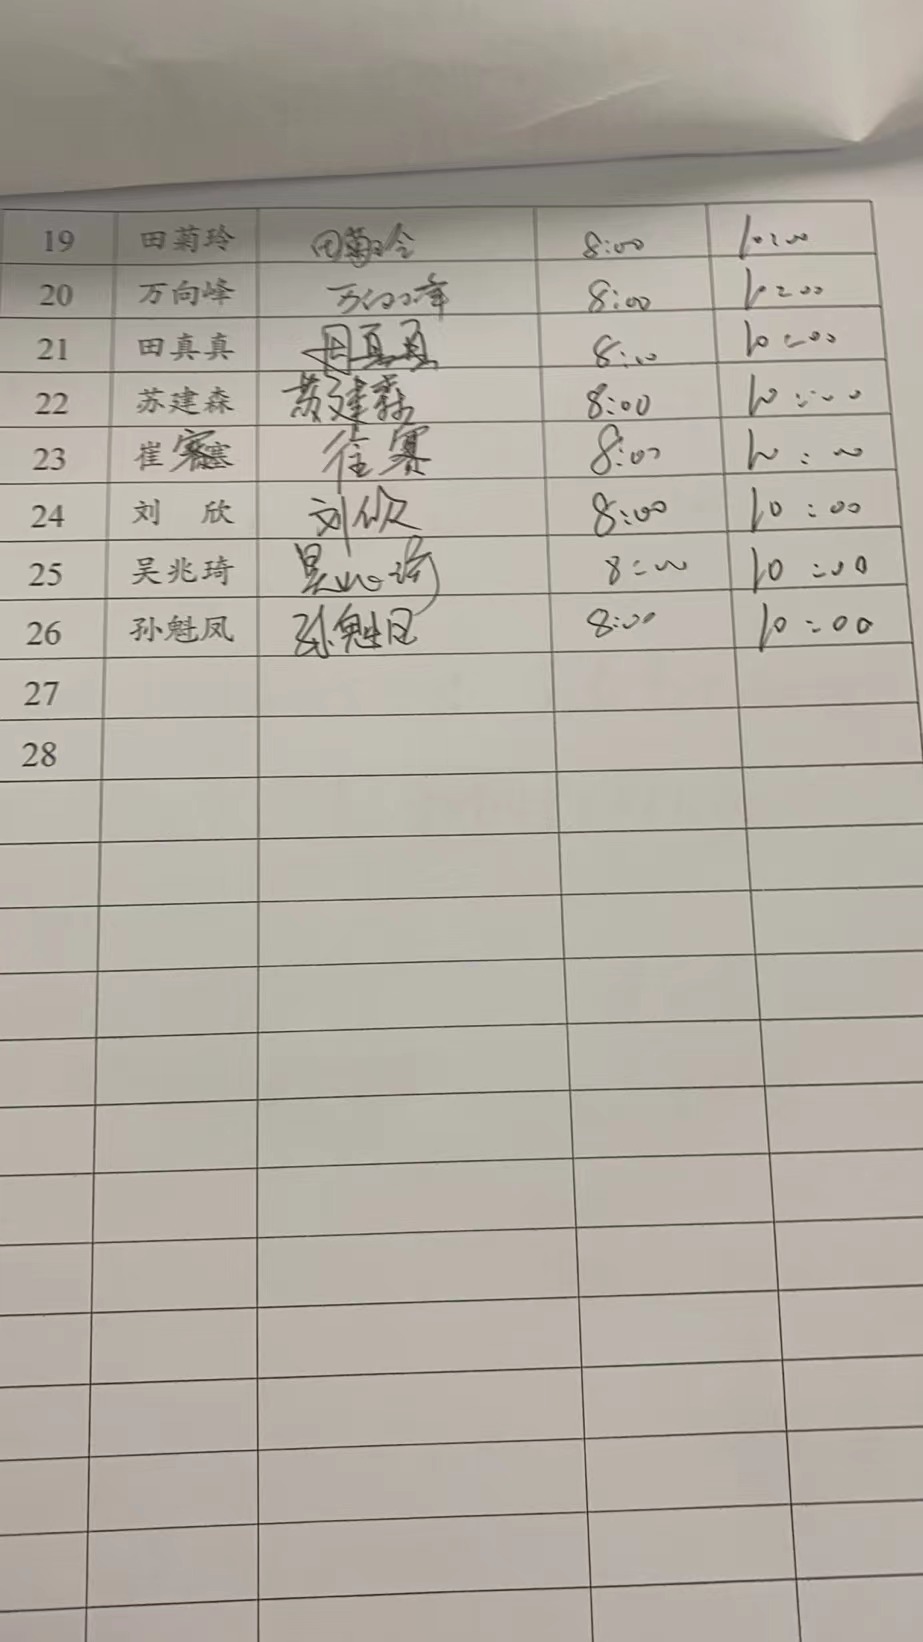 19 田菊玲 田菊玲 8:00 10:00
20 万向峰 万向峰 8:00 10:00
21 田真真 田真真 8:00 10:00
22 苏建森 苏建森 8:00 10:00
23 崔 崔赛 8:00 10:00
24 刘 欣 刘欣 8:00 10:00
25 吴兆琦 吴兆琦 8:00 10:00
26 孙魁凤 孙魁凤 8:00 10:00
27
28